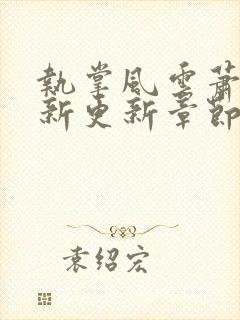 執掌風雲蕭
新更新章節
袁绍宏